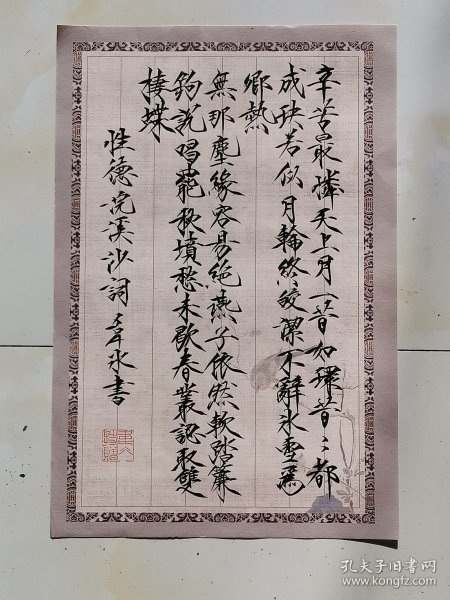 辛苦最憐天上月一昔如環昔〻都
成玦若似月輪終皎潔不辭氷雪為
卿熱
無那塵緣容易絕燕子依然軟踏簾
鈎說唱罷秋墳愁未歇春叢認取雙
棲蝶
性德浣溪沙詞 氷書
孔夫子旧书网
www.kongfz.com